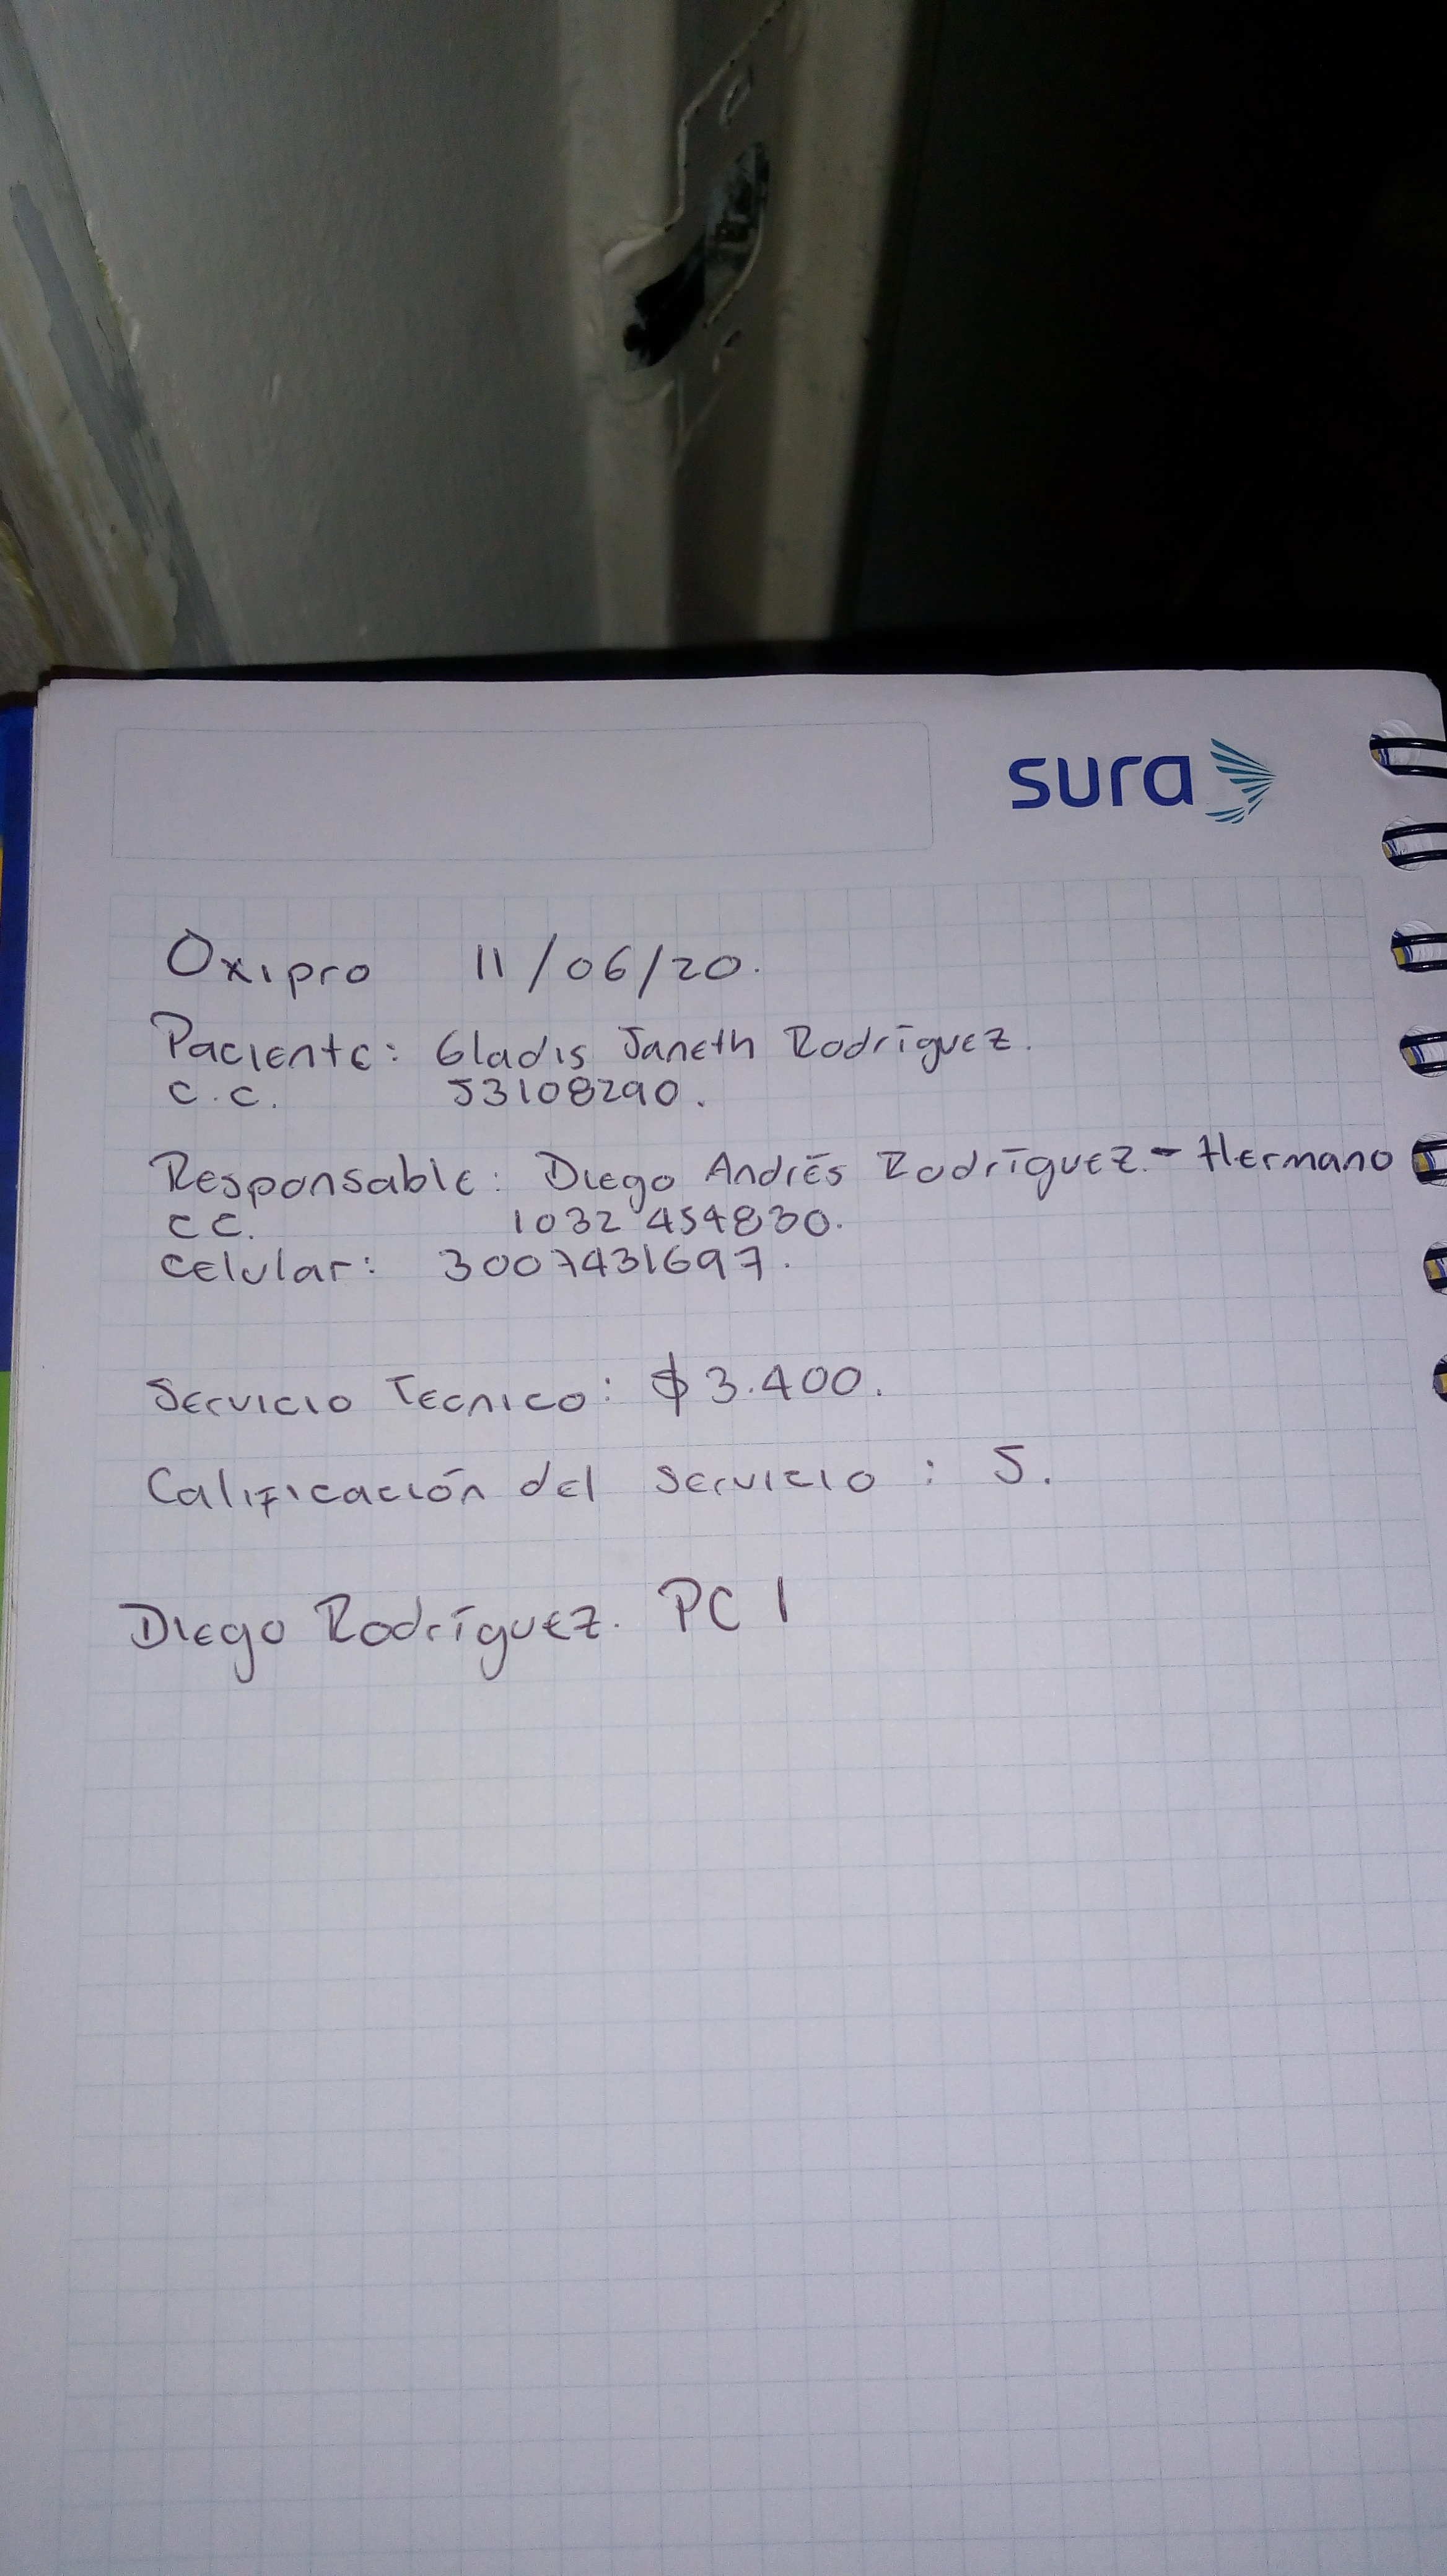 sura
Oxipro 11/06/20.
Paciente: Gladis Janeth Rodríguez.
C.C. 53108290.
Responsable: Diego Andrés Rodríguez. - Hermano
CC. 1032454830.
Celular: 3007431697.
Servicio Tecnico: $3.400.
Calificación del servicio: 5.
Diego Rodríguez. PC 1